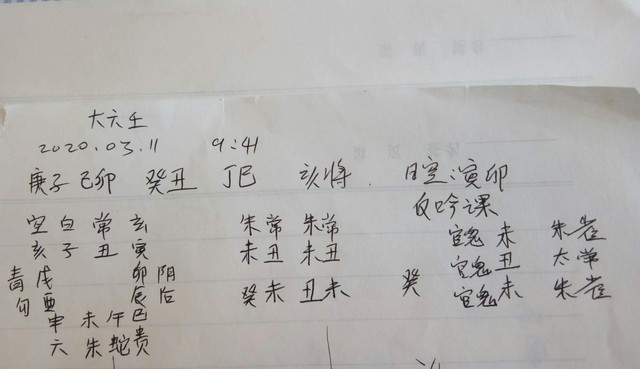 大六壬
2020.03.11 9:41
庚子 己卯 癸丑 丁巳 亥将. 日空:寅卯
反吟课
空 白 常 玄 朱常 朱常 官鬼 未 朱雀
亥 子 丑 寅 未丑 未丑 官鬼 丑 大常
青 戌 卯 阴 癸未 丑未 癸 官鬼 未 朱雀
勾 酉 辰 后
申 未 午 巳
六 朱 蛇 贵